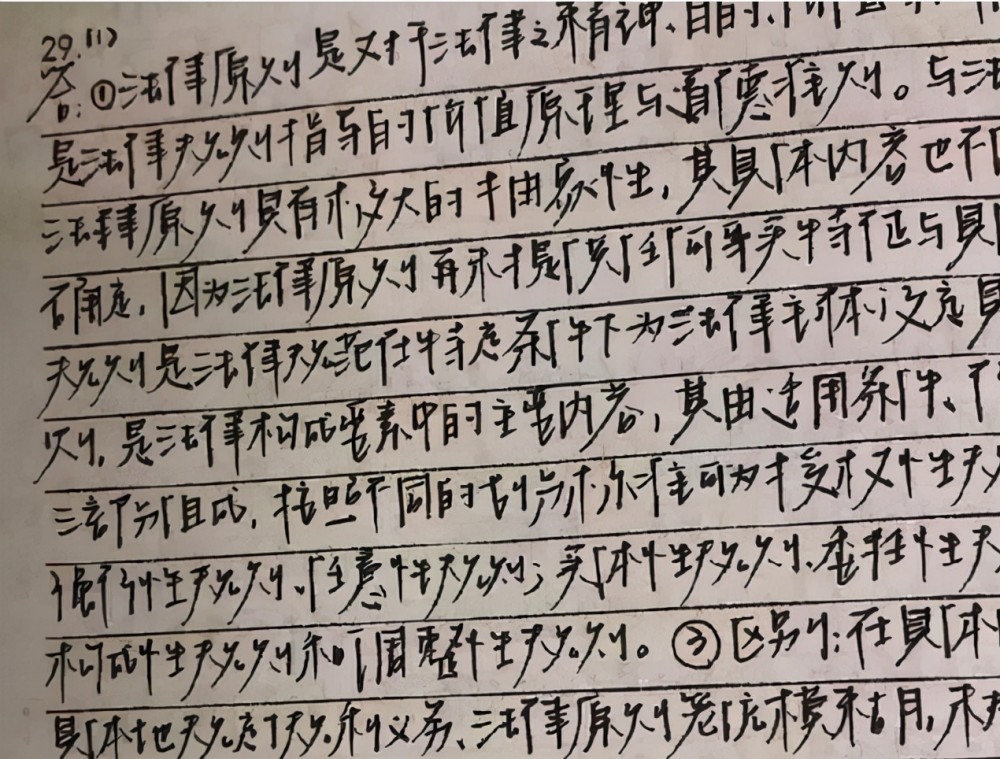 29.(1)
答:①法律原则是对于法律之精神、目的、价值
是法律规则指导目的价值原理与道德准则。与法
法律原则具有极大的抽象性,其具体内容也不
确定,因为法律原则再来提供任何事实特征与具
规则是法律规范在特定条件下为法律主体设定具
则,是法律构成要素中的主要内容,其由适用条件、
三部分组成,按照不同的划分标准可为授权性规
强行性规则、任意性规则;实体性规则、
构成性规则和调整性规则。③区别:在具体
具体地规定了规权利义务、法律原则笼统模糊,未